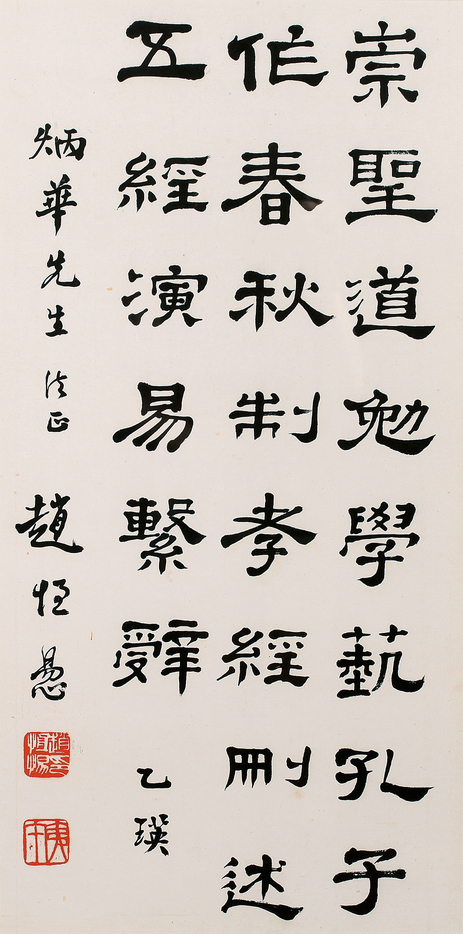 崇聖道勉學藝孔子
作春秋制孝經刪述
五經演易繫辭
乙瑛
炳華先生法正
趙恒惖